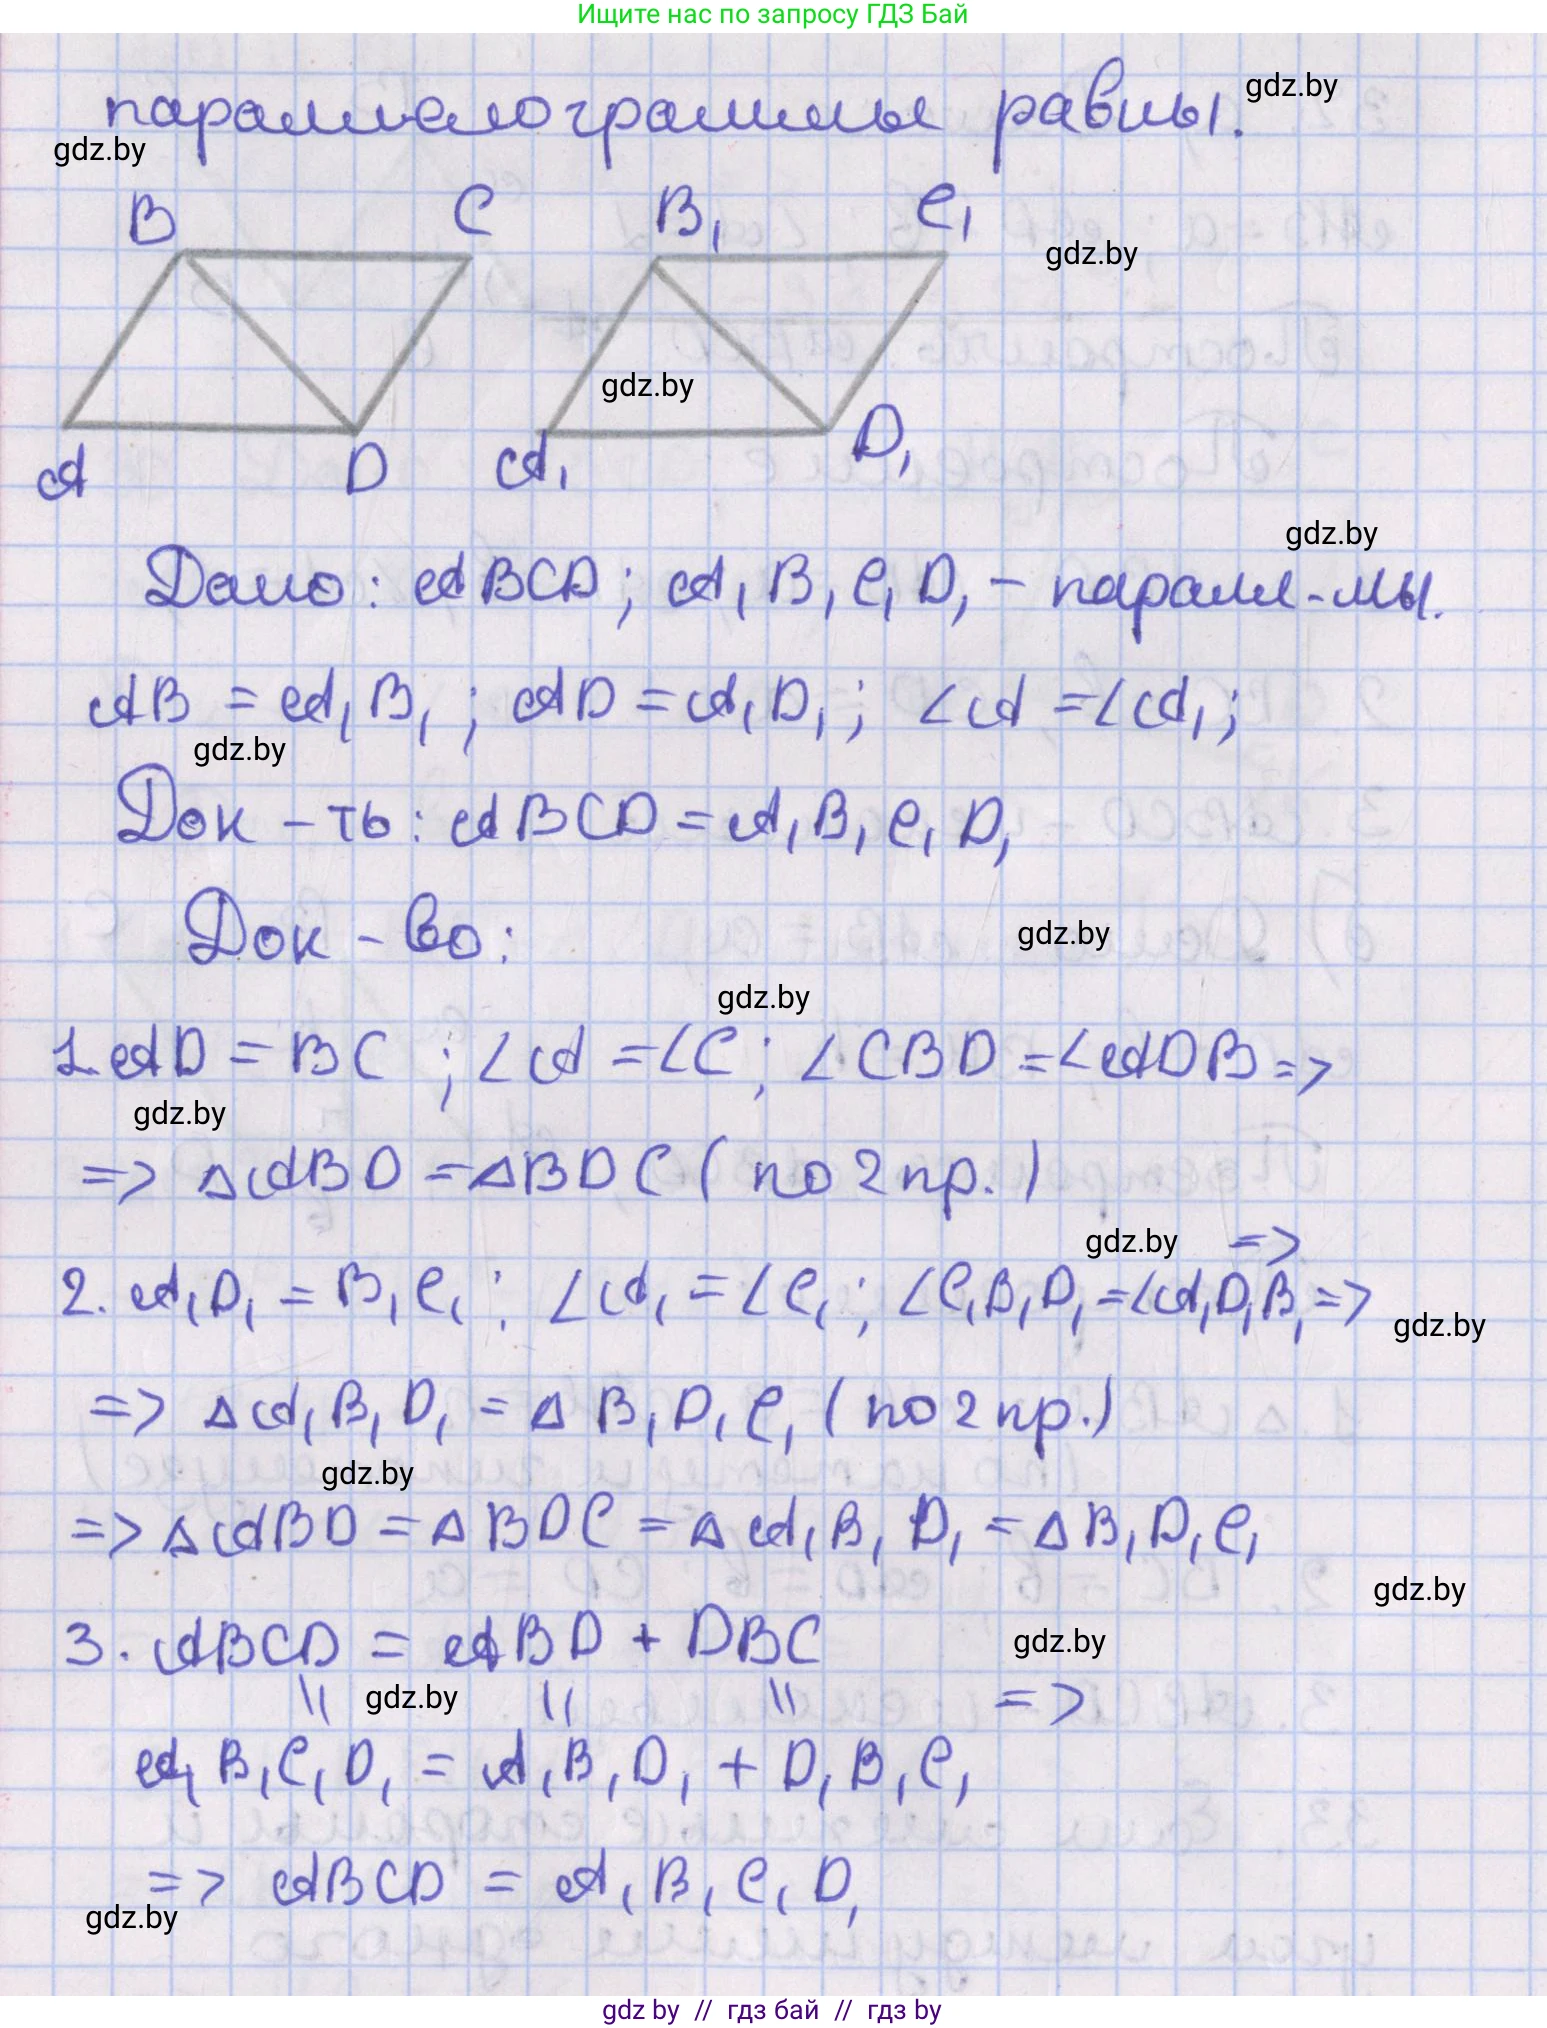 Ищите нас по запросу ГДЗ Бай
параллелограммы равны.
gdz.by
gdz.by
B C B₁ C₁
gdz.by
gdz.by
A D A₁ D₁
gdz.by
Дано: ABCD; A₁B₁C₁D₁ – паралл-мы.
AB = A₁B₁; AD = A₁D₁; ∠A = ∠A₁;
gdz.by
Док-ть: ABCD = A₁B₁C₁D₁
Док-во:
gdz.by
gdz.by
1. AD = BC; ∠A = ∠C; ∠CBD = ∠ADB =>
gdz.by
=> △ABD = △BDC (по 2 пр.)
gdz.by =>
2. A₁D₁ = B₁C₁; ∠A₁ = ∠C₁; ∠C₁B₁D₁ = ∠A₁D₁B₁ =>
gdz.by
=> △A₁B₁D₁ = △B₁D₁C₁ (по 2 пр.)
gdz.by
=> △ABD = △BDC = △A₁B₁D₁ = △B₁D₁C₁
gdz.by
3. ABCD = ABD + DBC
gdz.by
|| gdz.by || || =>
A₁B₁C₁D₁ = A₁B₁D₁ + D₁B₁C₁
=> ABCD = A₁B₁C₁D₁
gdz.by
gdz by // гдз бай // гдз by